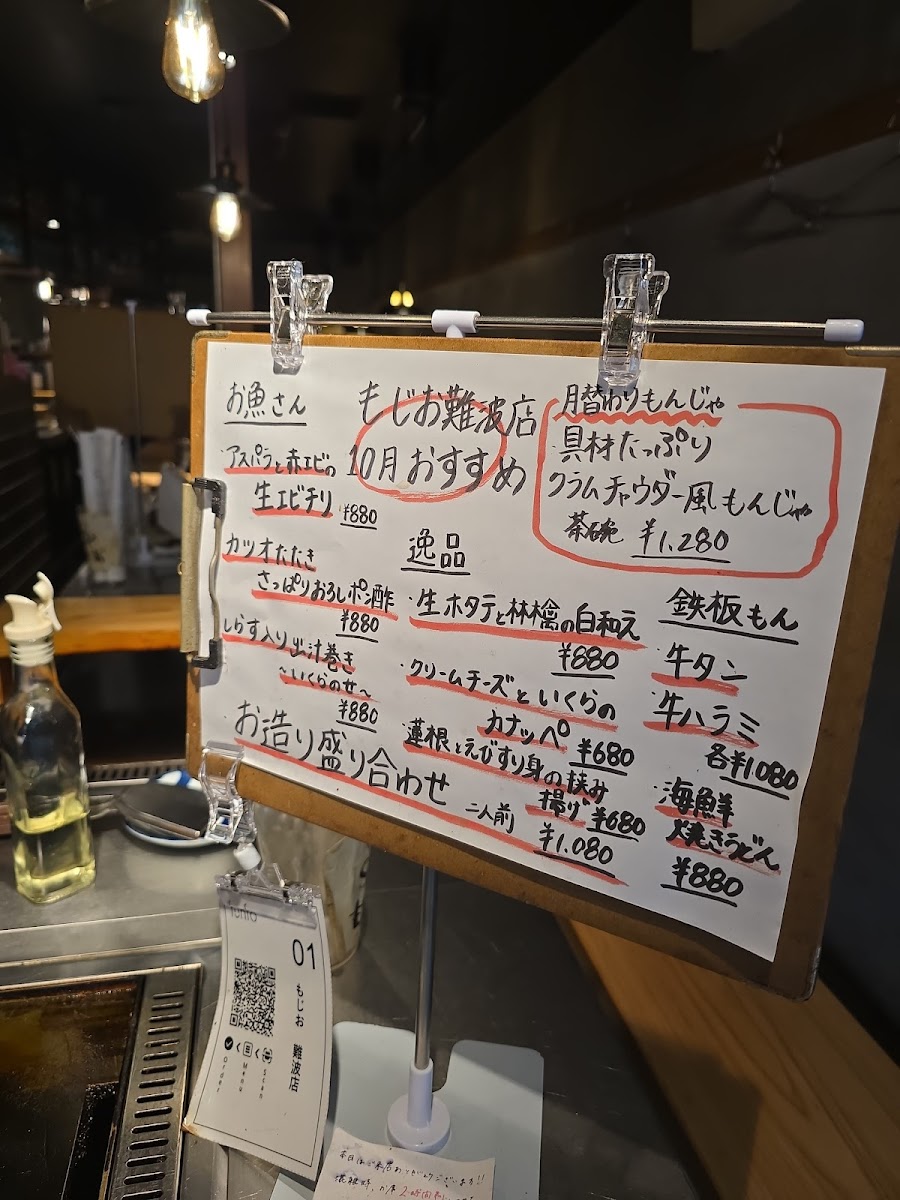 もじお難波店
10月おすすめ
お魚さん
アスパラと赤エビの
生エビチリ ¥880
カツオたたき
さっぱりおろしポン酢
¥880
しらす入り出汁巻き
～いくらのせ～
¥880
お造り盛り合わせ
二人前 ¥1.080
逸品
・生ホタテと林檎の白和え
¥880
・クリームチーズといくらの
カナッペ ¥680
・蓮根とえびすり身の挟み
揚げ ¥680
月替わりもんじゃ
具材たっぷり
クラムチャウダー風もんじゃ
茶碗 ¥1.280
鉄板もん
牛タン
牛ハラミ
各¥1.080
海鮮
焼きうどん
¥880
01
もじお 難波店
Scan
Menu
Order